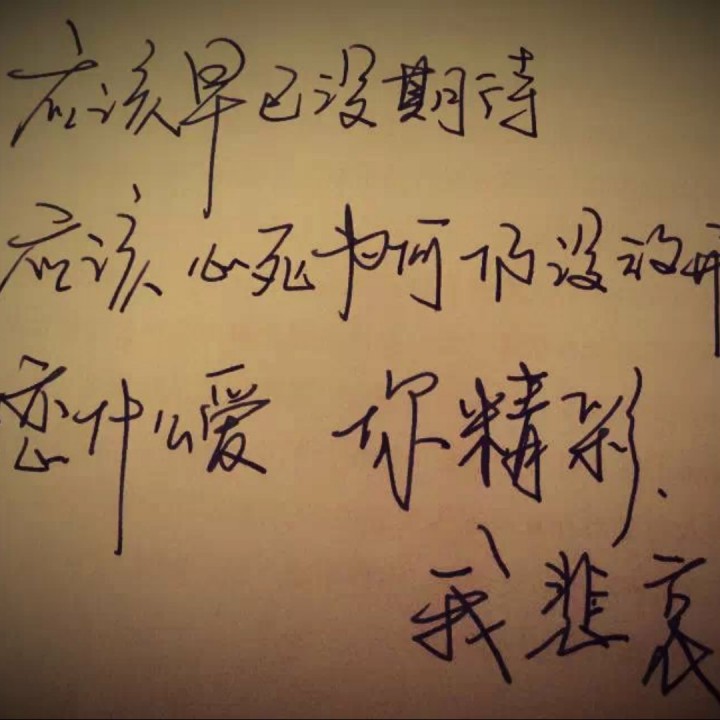 应该早已没期待
应该心死为何仍没放开
恋什么爱 你精彩.
我悲哀